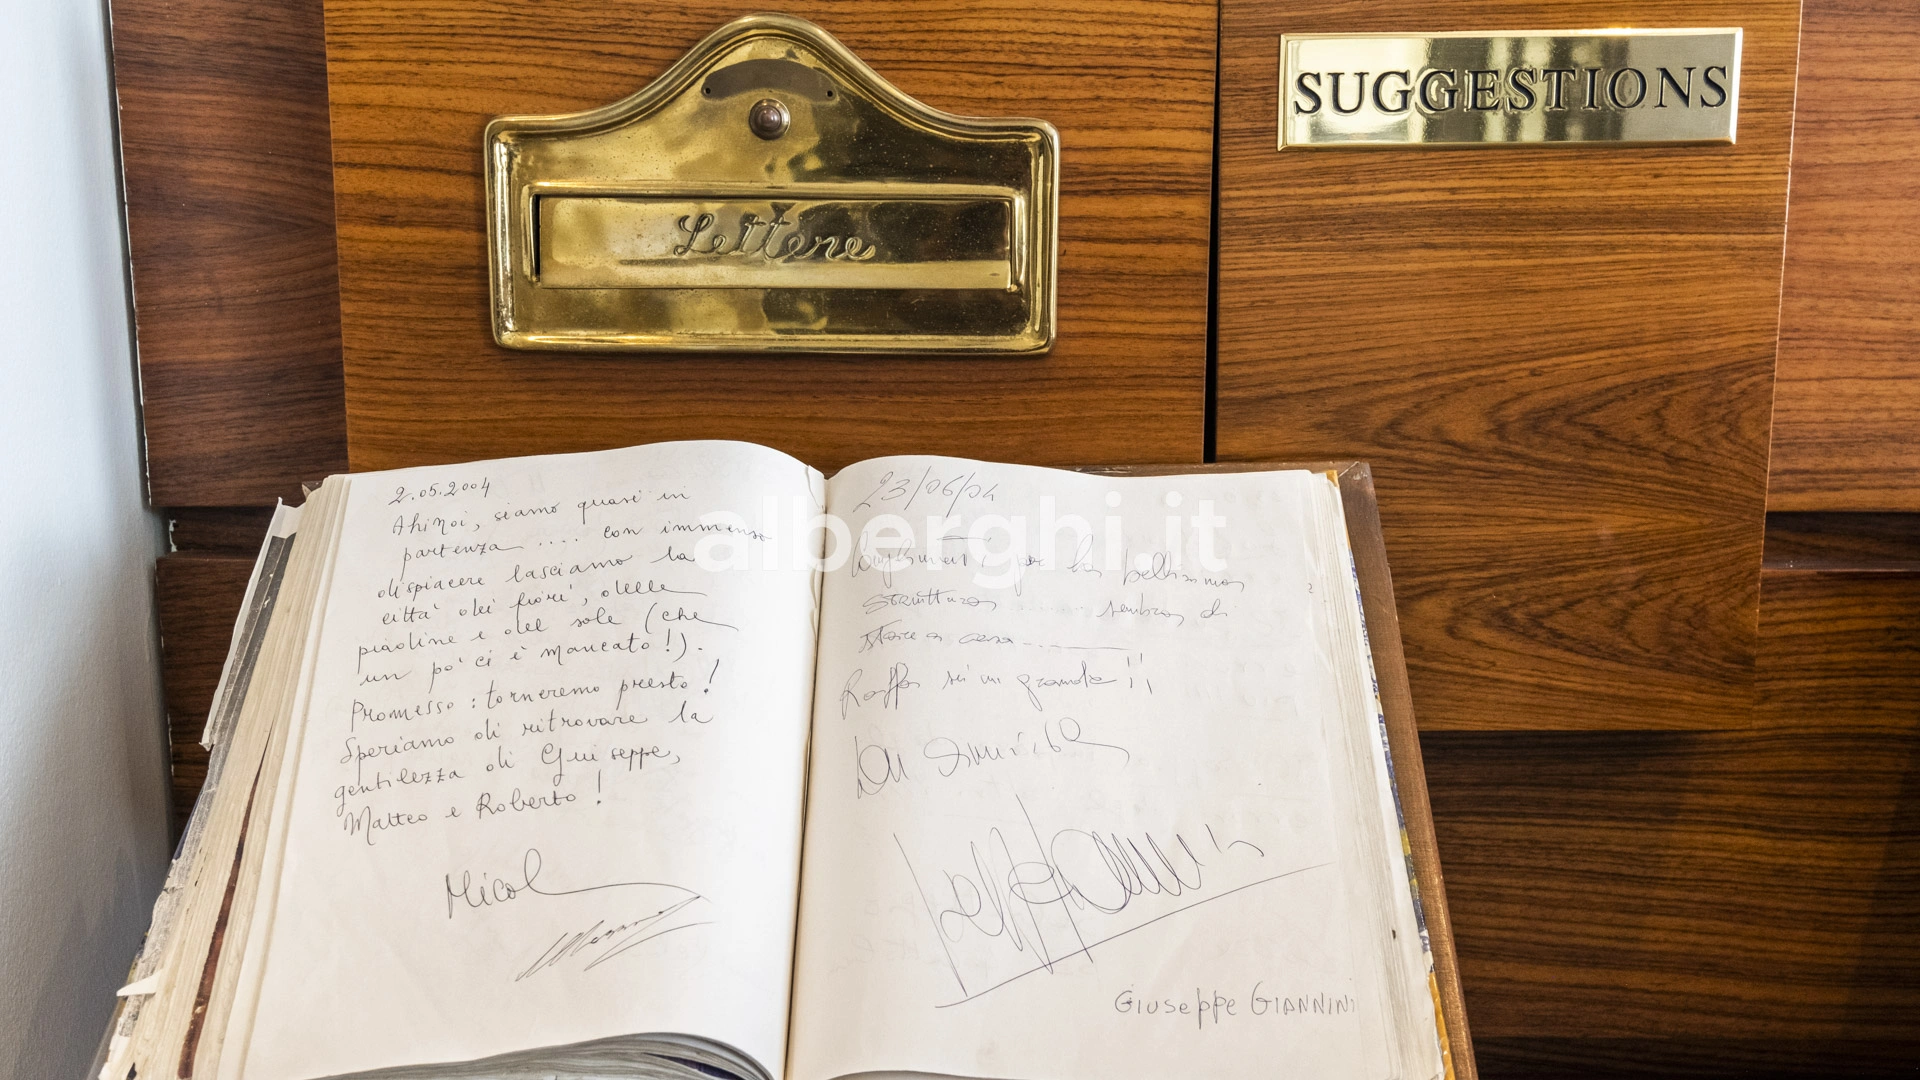 Lettere
SUGGESTIONS
2.05.2004
Ahinoi, siamo quasi in
partenza .... con immenso
dispiacere lasciamo la
città dei fiori, delle
piadine e del sole (che
un po' ci è mancato!).
Promesso: torneremo presto!
Speriamo di ritrovare la
gentilezza di Giuseppe,
Matteo e Roberto!
Micol
23/06/04
Complimenti per la bellissima
struttura ....... sembra di
stare a casa
Raffa sei un grande!!
Giuseppe GIANNINI
alberghi.it